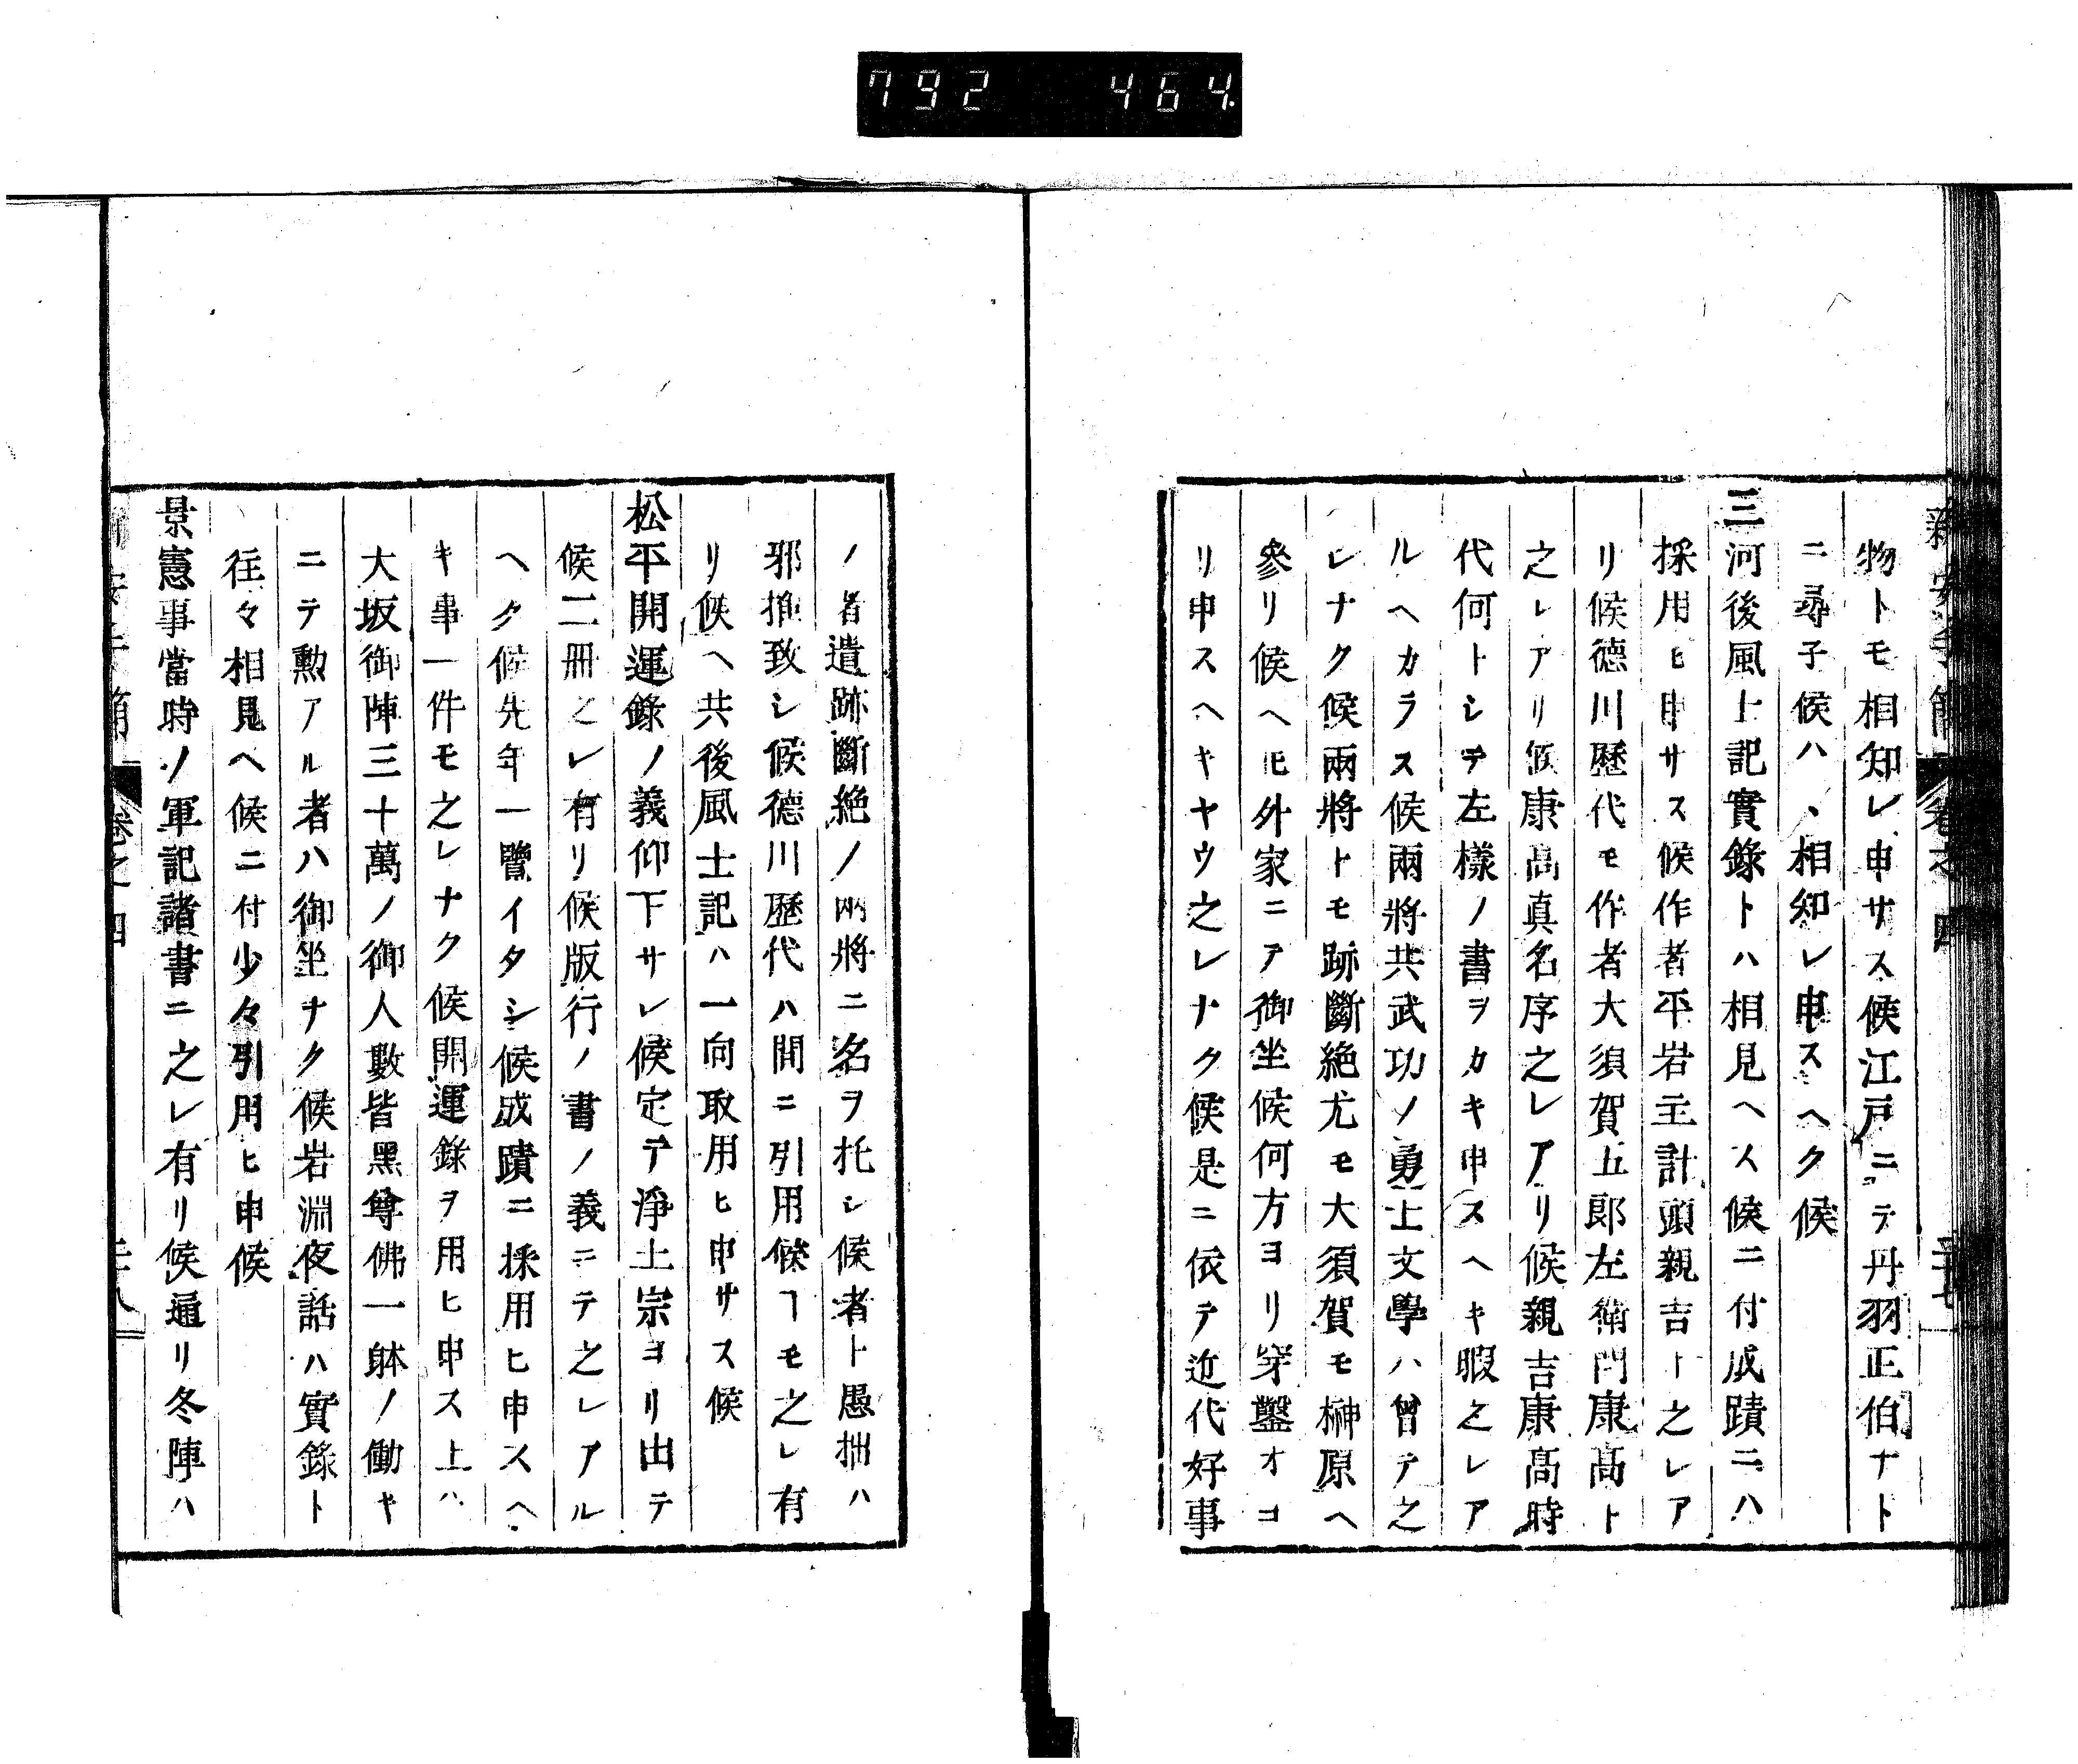 792 464
物トモ相知レ申サス候江戸ニテ丹羽正伯ナト
ニ尋子候ハヽ相知レ申スヘク候
三河後風土記實錄トハ相見ヘス候ニ付成蹟ニハ
採用ヒ申サス候作者平岩主計頭親吉ト之レア
リ候德川歷代モ作者大須賀五郎左衛門康高ト
之レアリ候康高真名序之レアリ候親吉康高時
代何トシテ左樣ノ書ヲカキ申スヘキ暇之レア
ルヘカラス候兩將共武功ノ勇士文學ハ曾テ之
レナク候兩將トモ跡斷絕尤モ大須賀モ榊原ヘ
參リ候ヘ𪜈外家ニテ御坐候何方ヨリ穿鑿オヨ
リ申スヘキヤウ之レナク候是ニ依テ近代好事
ノ者遺跡斷絕ノ兩將ニ名ヲ托シ候者ト愚拙ハ
邪推致シ候德川歷代ハ間ニ引用候ヿモ之レ有
リ候ヘ共後風土記ハ一向取用ヒ申サス候
松平開運錄ノ義仰下サレ候定テ淨土宗ヨリ出テ
候二冊之レ有リ候版行ノ書ノ義ニテ之レアル
ヘク候先年一覽イタシ候成蹟ニ採用ヒ申スヘ
キ事一件モ之レナク候開運錄ヲ用ヒ申ス上ハ
大坂御陣三十萬ノ御人數皆黑尊佛一躰ノ働キ
ニテ勲アル者ハ御坐ナク候岩淵夜話ハ實錄ト
往々相見ヘ候ニ付少々引用ヒ申候
景憲事當時ノ軍記諸書ニ之レ有リ候通リ冬陣ハ
卷之四